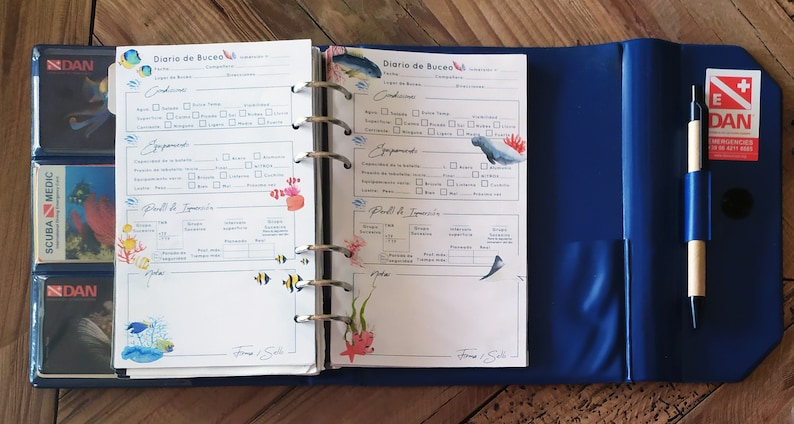 DAN
SCUBA MEDIC
International Diving Emergency Card
DAN
Diario de Buceo Inmersión nº
Fecha Compañero
Lugar de Buceo Direcciones
Condiciones
Agua: Salada Dulce Temp. Visibilidad
Superficie: Calma Picada Sol Nubes Lluvia
Corriente: Ninguna Ligera Media Fuerte
Equipamiento
Capacidad de la botella L Acero Aluminio
Presión de la botella: Inicio Final NITROX
Equipamiento vario: Brújula Linterna Cuchillo
Lastre: Peso Bien Mal Próxima vez
Perfil de Inmersión
Grupo Sucesivo
TNR
Grupo Sucesivo
Intervalo superficie
Grupo Sucesivo
Planeado Real
Parada de seguridad
Prof. máx:
Tiempo máx:
Notas
Firma / Sello
Diario de Buceo Inmersión nº
Fecha Compañero
Lugar de Buceo Direcciones
Condiciones
Agua: Salada Dulce Temp. Visibilidad
Superficie: Calma Picada Sol Nubes Lluvia
Corriente: Ninguna Ligera Media Fuerte
Equipamiento
Capacidad de la botella L Acero Aluminio
Presión de la botella: Inicio Final NITROX
Equipamiento vario: Brújula Linterna Cuchillo
Lastre: Peso Bien Mal Próxima vez
Perfil de Inmersión
Grupo Sucesivo
TNR
Grupo Sucesivo
Intervalo superficie
Grupo Sucesivo
Planeado Real
Parada de seguridad
Prof. máx:
Tiempo máx:
Notas
Firma / Sello
E
DAN
EMERGENCIES
+39 06 4211 8685